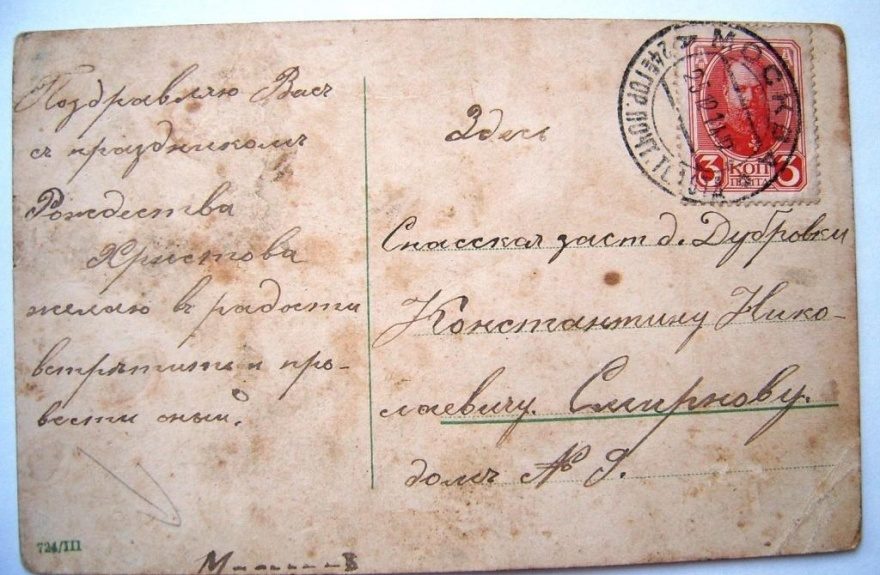 Поздравляю Васъ
съ праздникомъ
Рождества
Христова
желаю въ радости
встрѣтить и про-
вести оный.
724/III
Здесь
Спасская заст д. Дубровки
Константину Нико-
лаевичу. Смирнову.
домъ № 9.
МОСКВА
3 КОП 3